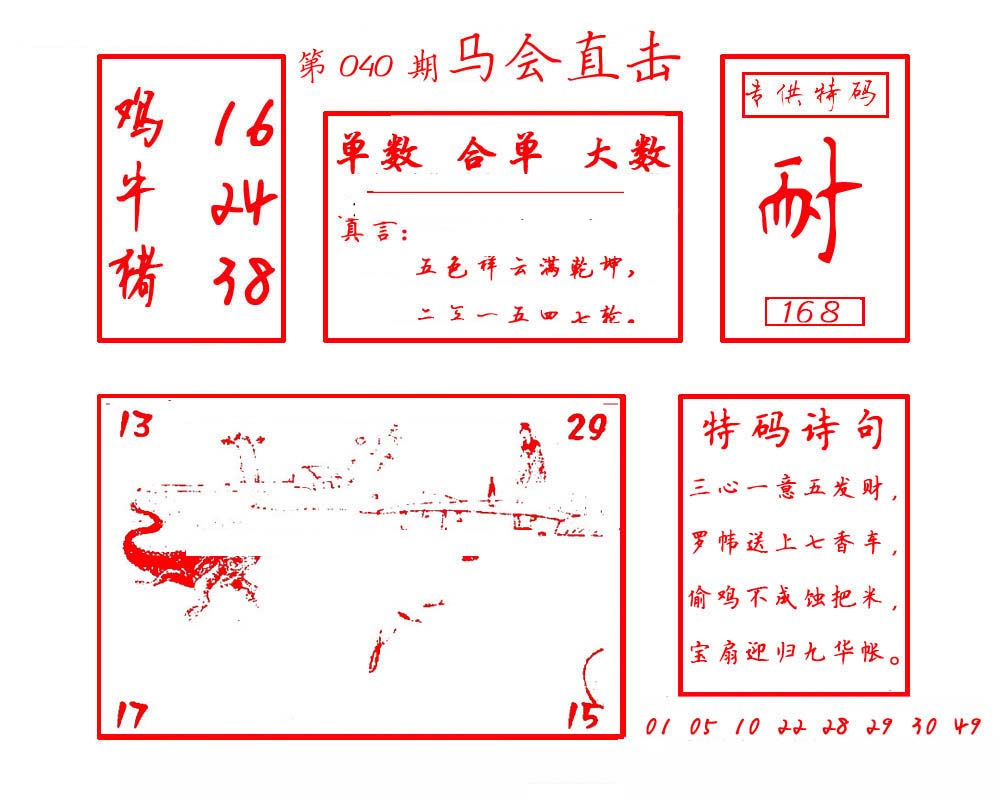 第 040 期 马会直击
鸡 16
牛 24
猪 38
单数 合单 大数
真言：
五色祥云满乾坤，
二三一五四七轮。
专供特码
耐
168
13 29
17 15
特码诗句
三心一意五发财，
罗帏送上七香车，
偷鸡不成蚀把米，
宝扇迎归九华帐。
01 05 10 22 28 29 30 49